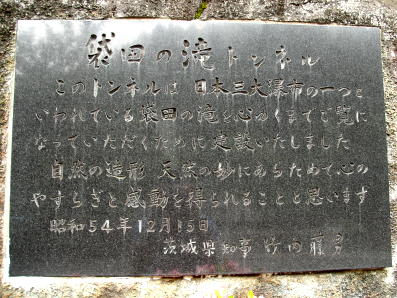 袋田の滝トンネル
このトンネルは 日本三大瀑布の一つと
いわれている袋田の滝を心ゆくまでご覧に
なっていただくために建設いたしました
自然の造形 天然の妙にあらためて心の
やすらぎと感動を得られることと思います
昭和54年12月15日
茨城県知事 竹内藤男